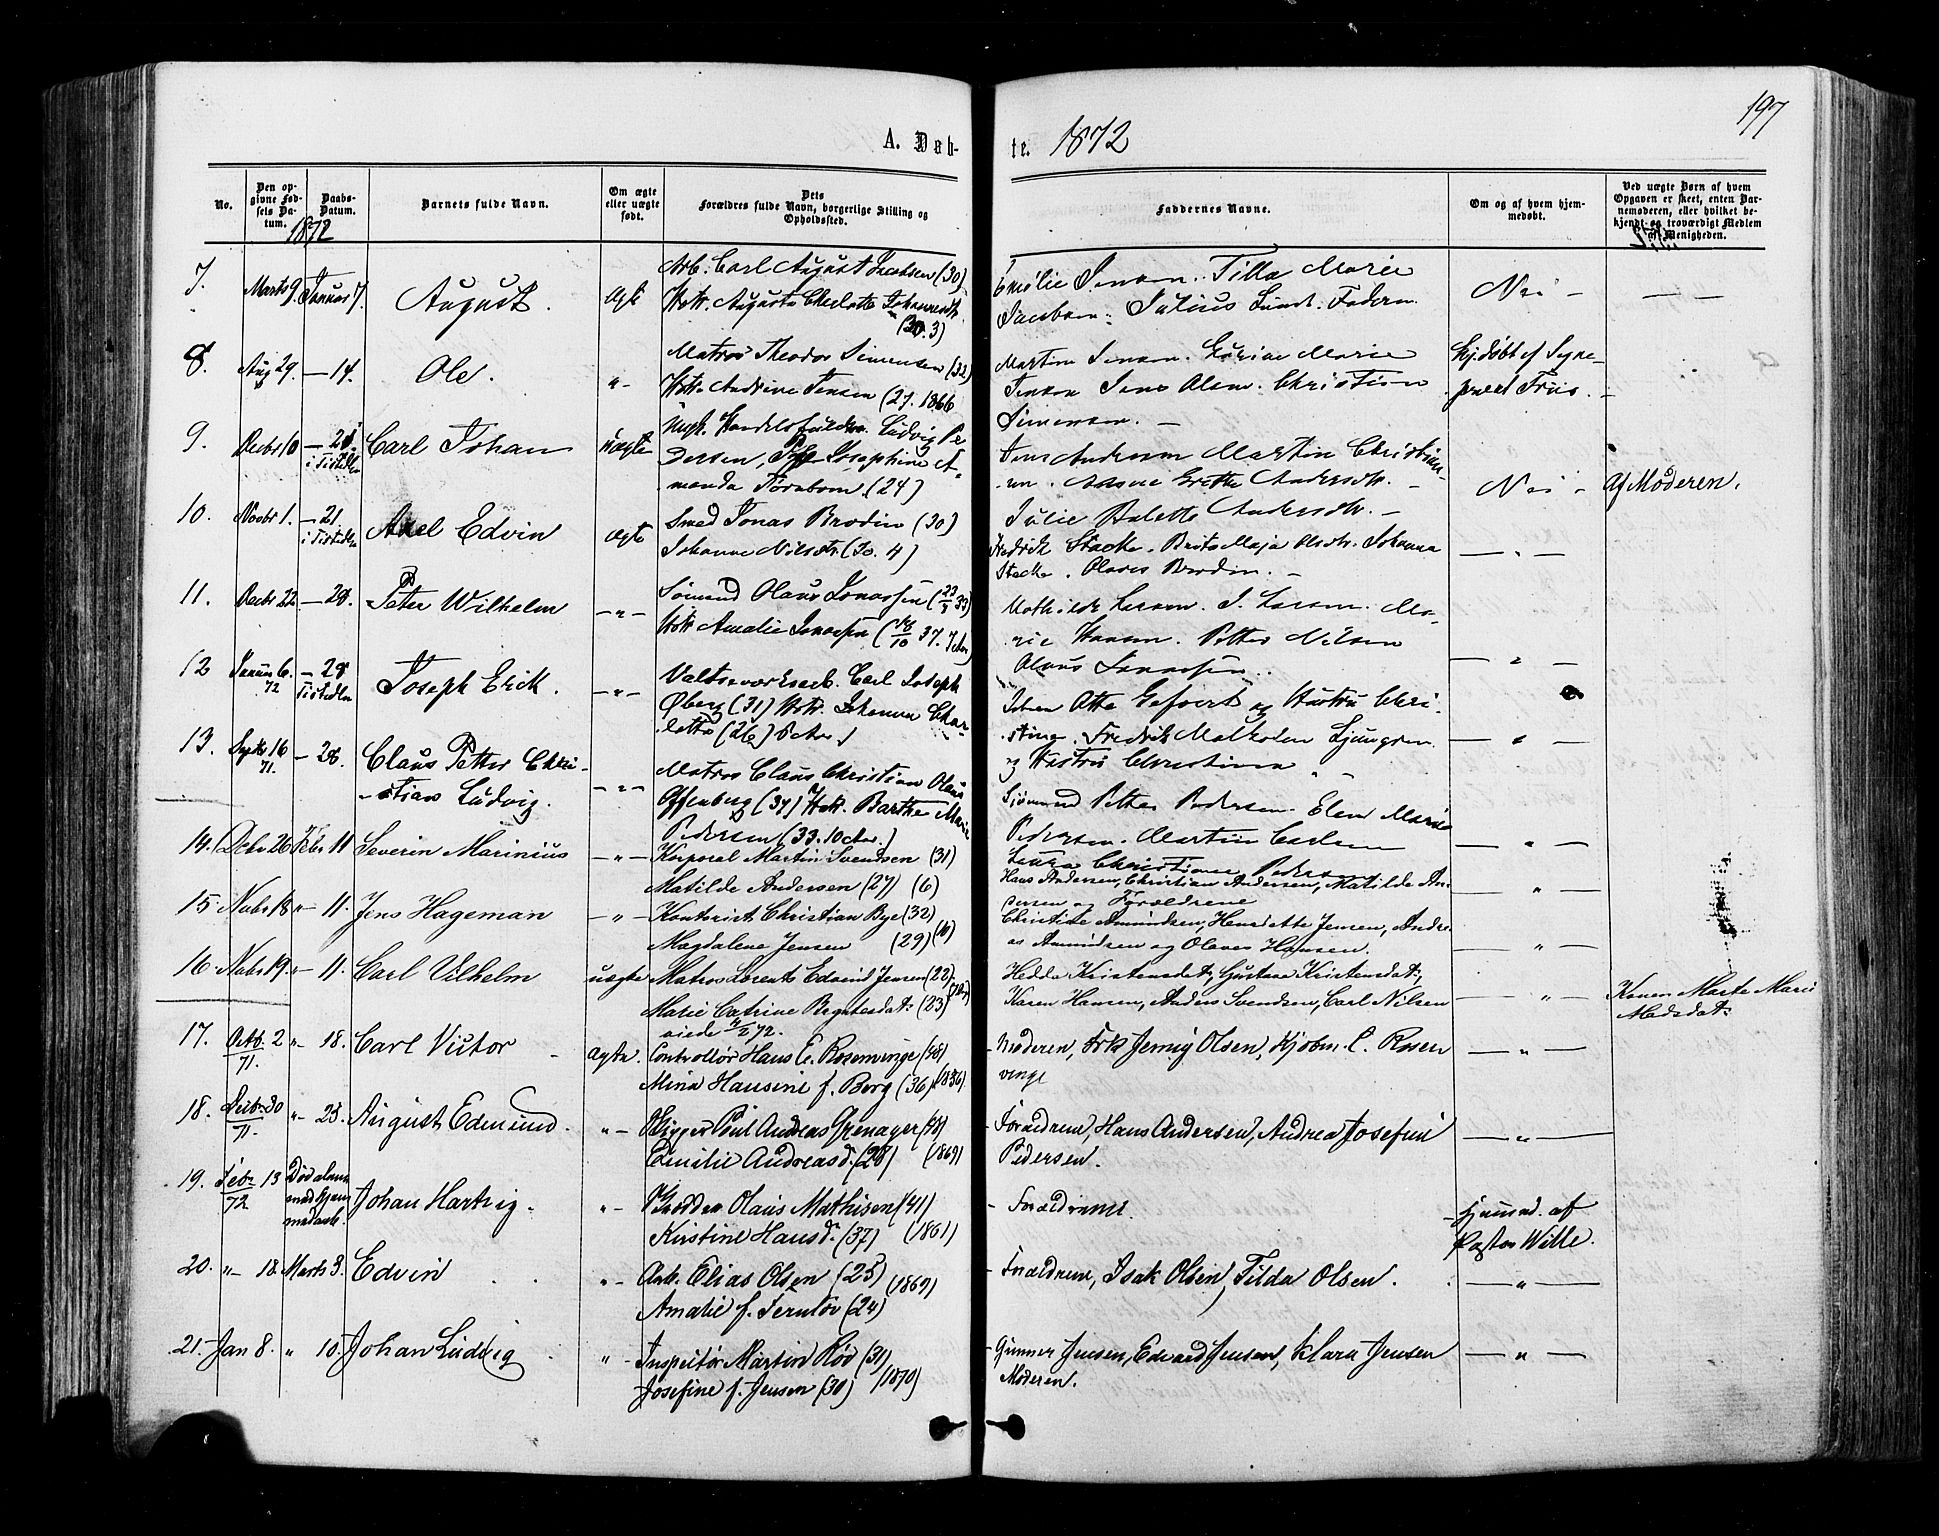 197
A. Døb- te. 1872
No.
Den op-
givne Fød-
sels Da-
tum.
Daabs-
Datum.
1872
Barnets fulde Navn.
Om ægte
eller uægte
født.
Dets
Forældres fulde Navn, borgerlige Stilling og
Opholdssted.
Faddernes Navne.
Om og af hvem hjem-
medøbt.
Ved uægte Børn af hvem
Opgaven er skeet, enten Bar-
nemoderen, eller hvilket be-
kjendt og troværdigt Medlem
af Menigheden.
7. Marts 9. Januar 7. August. ægte
Arb. Carl August Jacobsen (30)
Hstr. Augusta Charlotte Johannesdtr.
Emilie Jensen. Tilla Marie
Jacobsen. Julius Lund. Faderen
Nei —
8. Aug 29. — 14. Ole. "-
Matros Theodor Simensen (32)
Hstr. Andrine Jensen (27. 1866
Martin Jensen. Marie
Jensen Jens Olsen. Christian
Simensen. —
Hj.døbt af Friis.
9. Decbr 10 — 28 i Tistedln Carl Johan uægte
Ungk. Ludvig Pe-
dersen, Pige Josephine A-
manda Törnbom (24)
Jens Andersen Martin Christian-
sen. Grethe Andersdtr. —
Nei — Af Moderen.
10. Novbr 1. — 21 i Tistedln Axel Edvin ægte
Smed Jonas Brodin (30)
Johanne Nilsdtr. (30. 4)
Julie Andersdtr. —
Fredrik Stacke. Brita Maja Olsdtr. Johanna
Stacke. Olaves Brodin. —
— " —
11. Decbr 22 — 28. Peter Wilhelm — " —
Sömand Olaus Jonassen (22/3 33)
Hstr Amalie Jonassen (18/10 37.
Mathilde Larsen. J. Larsen. Ma-
rie Hansen. Petter Nilsen
Olaus Jonassen.
— " —
12 Januar 6. 72 — 28 Tistedln Joseph Erick. — " —
Valtseværksarb. Carl Joseph
Øberg (31) Hstr. Johanna Char-
lotta (26)
Johan Otto Gefvert og Hustru Chri-
stina. Fredrik Malkolm Ljungren
og Hustru Christina
— " —
13. Septbr 16 71. — 28. Claus Petter Chri-
stian Ludvig. — " —
Matros Claus Christian Olaus
Offenberg (34) Hstr. Barthe Marie
Pedersen (33. 10
Sjömand Petter Pedersen. Elen Marie
Pedersen. Martin Carlsen
Christiane Pedersen
— " —
14. Debr 26 Febr 11 Severin Marinius — " —
Korporal Martin Svendsen (31)
Matilde Andersen (27) (6)
Hans Andersen, Christian Andersen, Matilde An-
dersen og Forældrene
— " —
15 Novbr 18 " 11. Jens Hageman — " —
Kontorist Christian Bye (32)
Magdalene Jensen (29)
Christine Amundsen, Henriette Jensen, Andre-
as Amundsen og Olaves Hansen.
— " —
16. Novbr 19. " 11. Carl Vilhelm uægte
Matros Lorents Edvind Jensen (22)
Marie Catrine Berntesdat. (23)
viede 4/2 72.
Hedda Kristensdat., Gustava Kristensdat.,
Karen Hansen, Anders Svendsen, Carl Nilsen
— " — Konen Marte Marie
Madsdat.
17. Octb. 2 71. " 18. Carl Victor ægte.
Controllör Hans E. Rosenvinge (48)
Mina Hansine f. Berg (36) (1856)
Moderen, Frk Jenny Olsen, Kjöbm. C. Rosen-
vinge
— " —
18. Decbr. 30 71. " 25. August Edmund. " -
Rigger Poul Andreas Grenager
Emilie Andreasd. (28) (1869)
Forældrene, Hans Andersen, Andrea Josefine
Pedersen.
— " —
19. Febr 13 72 Johan Hartvig. " -
Olaus Mathisen (41)
Kirstine Hansd. (37) (1861)
Forældrene.
Hjemmed. af
Pastor Wille.
20. " - 18. Marts 3. Edvin " -
Arb. Elias Olsen (25)
Amalie f. Ternlöv (24) (1869)
Forældrene, Isak Olsen, Tilda Olsen.
— " —
21. Jan 8. " 10. Johan Ludvig " -
Inspectör Martin Röd (31)
Josefine f. Jensen (30) (1870)
Gunner Jensen, Edvard Jensen, Klara Jensen
Moderen.
— " —